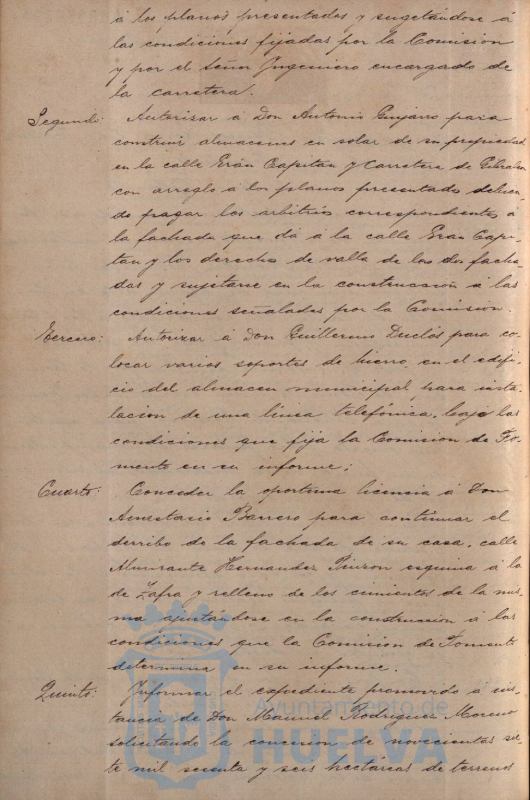 á los planos presentados y sugetándose á
las condiciones fijadas por la Comision
y por el Señor Ingeniero encargado de
la carretera.
Segundo: Autorizar á Don Antonio Guijarro para
construir almacenes en solar de su propiedad
en la calle Gran Capitan y Carretera de Gibraleon
con arreglo á los planos presentados debien-
do pagar los arbitrios correspondientes á
la fachada que dá á la calle Gran Capi-
tan y los derechos de valla de las dos facha
das y sujetarse en la construccion á las
condiciones señaladas por la Comision.
Tercero: Autorizar á Don Guillermo Duclós para co-
locar varios soportes de hierro en el edifi-
cio del almacen municipal, para insta-
lacion de una linea telefónica, bajo las
condiciones que fija la Comision de Fo-
mento en su informe;
Cuarto: Conceder la oportuna licencia á Don
Anastasio Barrero para continuar el
derribo de la fachada de su casa, calle
Almirante Hernandez Pinzon esquina á la
de Zafra y relleno de los cimientos de la mis-
ma ajustándose en la construccion á las
condiciones que la Comision de Fomento
determina en su informe.
Quinto: Informar el expediente promovido á ins-
tancia de Don Manuel Rodriguez Moreno
solicitando la concesion de novecientas sie-
te mil sesenta y seis hectáreas de terreno
Ayuntamiento de
HUELVA